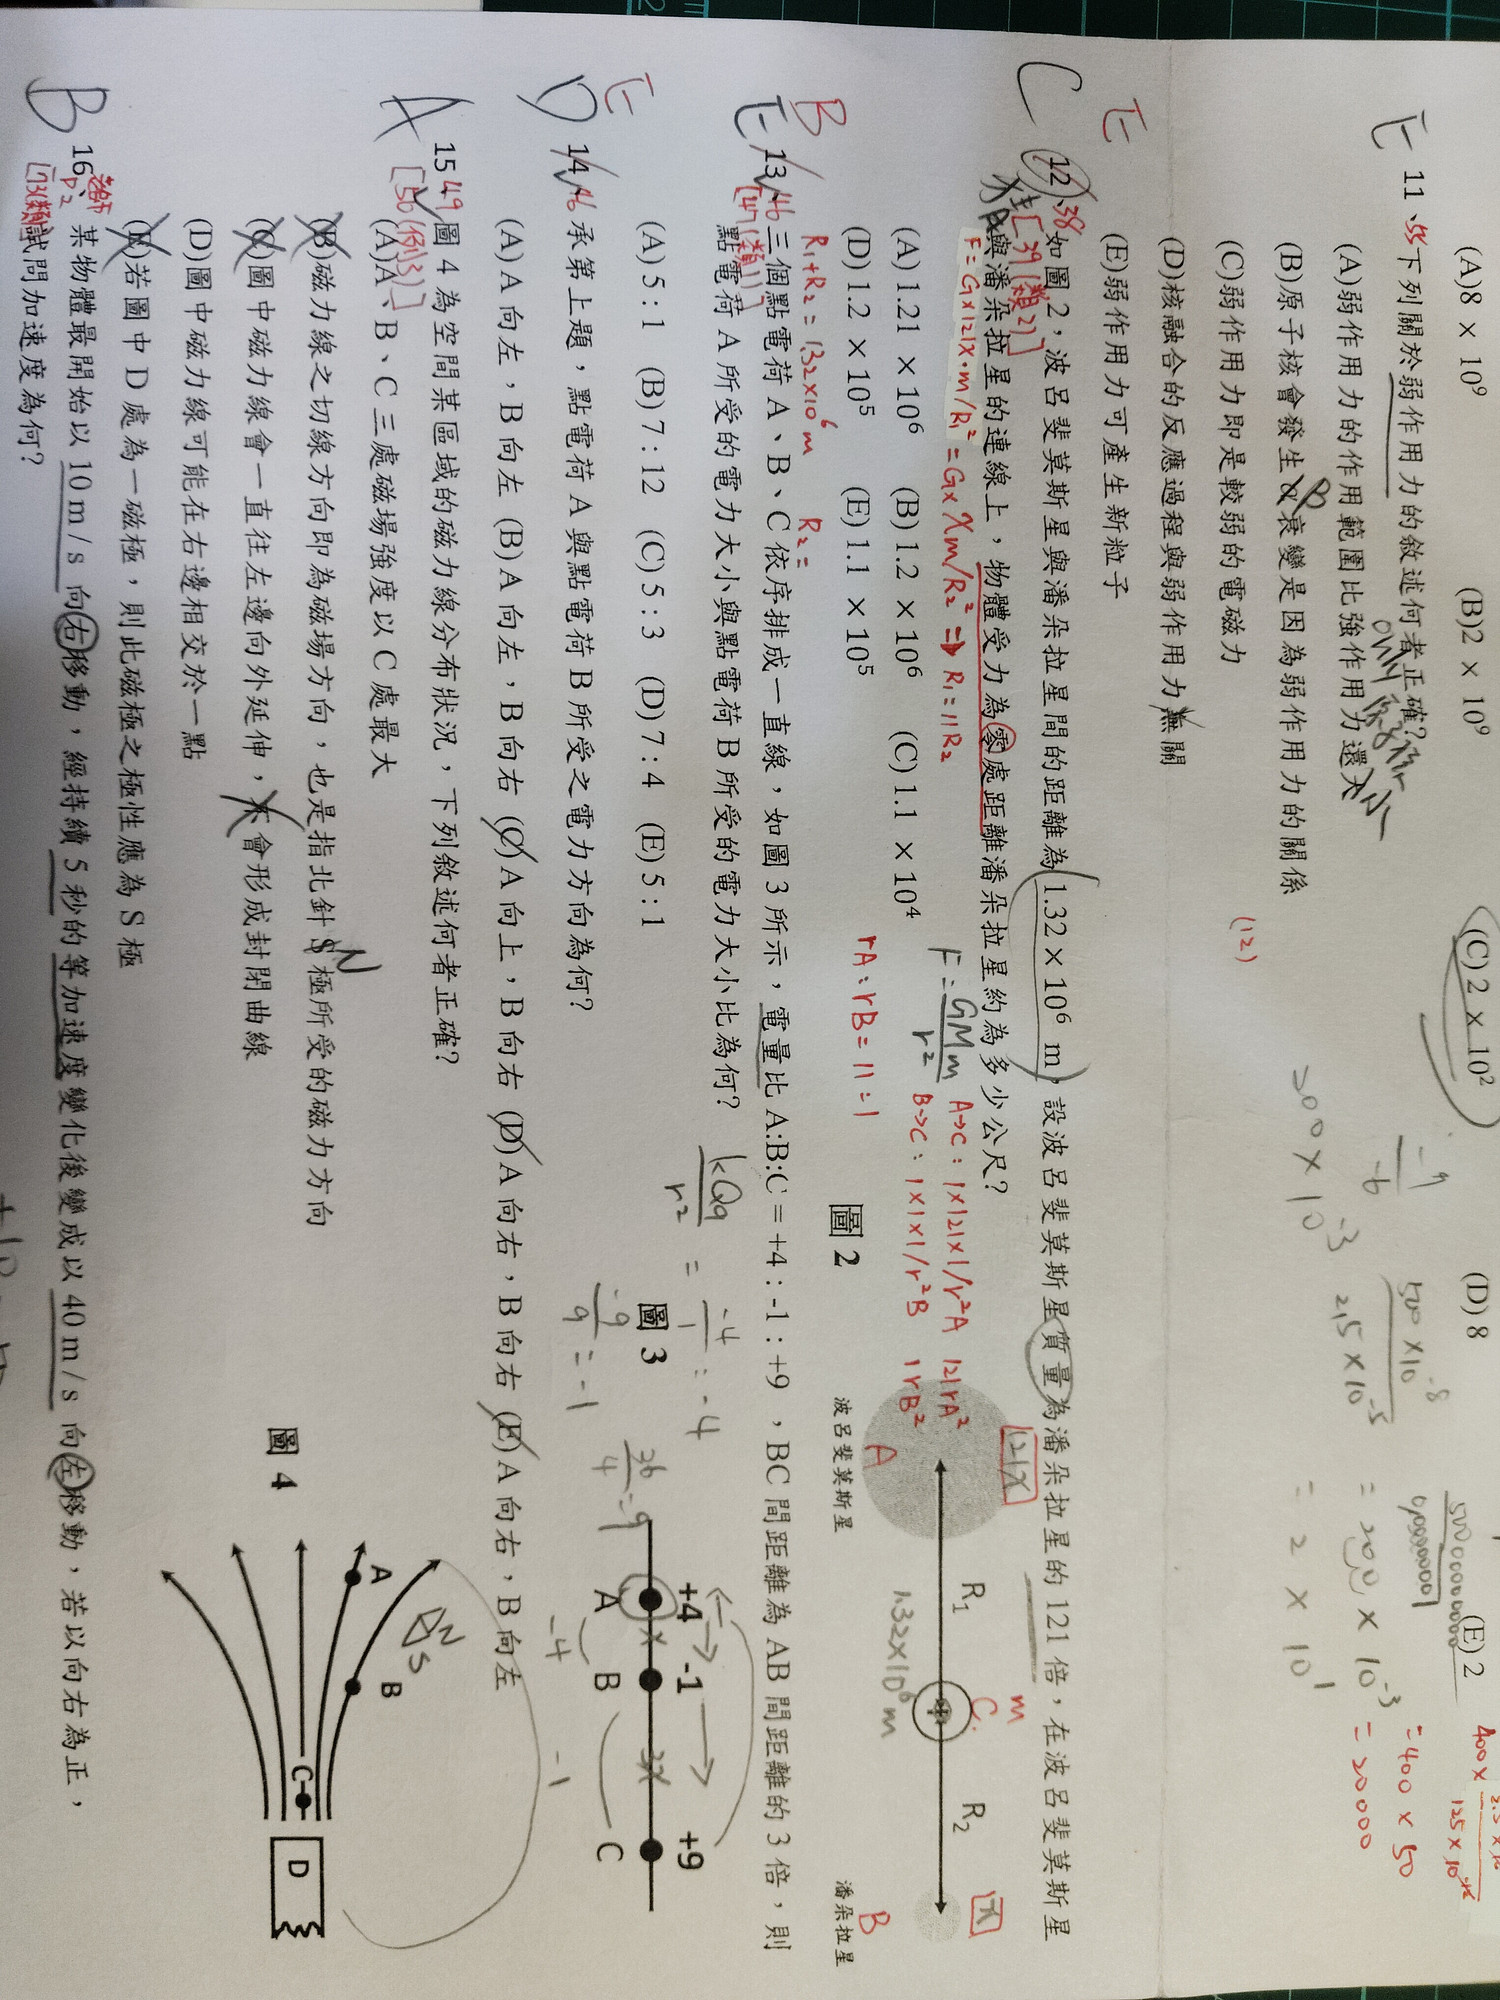 (A)8 × 10⁹ (B)2 × 10⁹ (C)2 × 10² (D)8 (E)2
E 11、55下列關於弱作用力的敘述何者正確?
(A)弱作用力的作用範圍比強作用力還大 小
(B)原子核會發生α衰變是因為弱作用力的關係
β
(C)弱作用力即是較弱的電磁力
(D)核融合的反應過程與弱作用力無關
(E)弱作用力可產生新粒子
-9
-6
50 × 10⁻⁸
2.5 × 10⁻⁵
= 200 × 10⁻³
= 2 × 10¹
200 × 10⁻³
= 400 × 50
= 20000
(12)
C E
12、38如圖 2，波呂斐莫斯星與潘朵拉星間的距離為 1.32 × 10⁶ m，設波呂斐莫斯星質量為潘朵拉星的 121 倍，在波呂斐莫斯星
[39(類2)]
與潘朵拉星的連線上，物體受力為零處距離潘朵拉星約為多少公尺?
F = G×121X·m/R₁² = G×Xm/R₂² ⇒ R₁ = 11R₂
F = GMm
r²
A→C : 1×121×1/r²A 121rA²
B→C : 1×1×1/r²B 1rB²
(A) 1.21 × 10⁶ (B) 1.2 × 10⁶ (C) 1.1 × 10⁴
(D) 1.2 × 10⁵ (E) 1.1 × 10⁵
rA : rB = 11 : 1
R₁+R₂ = 1.32×10⁶ m R₂ =
圖 2
121X
m
X
R₁ R₂
A
C
B
1.32×10⁶ m
波呂斐莫斯星
潘朵拉星
B
E 13、46三個點電荷 A、B、C 依序排成一直線，如圖 3 所示，電量比 A:B:C = +4 : -1 : +9 ，BC 間距離為 AB 間距離的 3 倍，則
[47(類1)]
點電荷 A 所受的電力大小與點電荷 B 所受的電力大小比為何?
(A) 5 : 1 (B) 7 : 12 (C) 5 : 3 (D) 7 : 4 (E) 5 : 1
kQq
r²
= -4
1
: -4
-9
9
= -1
36
4
= 9
圖 3
+4 -1 +9
X 3X
A B C
-4 -1
E
D 14、46承第上題，點電荷 A 與點電荷 B 所受之電力方向為何?
(A) A 向左，B 向左 (B) A 向左，B 向右 (C) A 向上，B 向右 (D) A 向右，B 向右 (E) A 向右，B 向左
A 15、49圖 4 為空間某區域的磁力線分布狀況，下列敘述何者正確?
[50(例3)]
(A)A、B、C 三處磁場強度以 C 處最大
(B)磁力線之切線方向即為磁場方向，也是指北針 S 極所受的磁力方向
N
(C)圖中磁力線會一直往左邊向外延伸，不會形成封閉曲線
(D)圖中磁力線可能在右邊相交於一點
(E)若圖中 D 處為一磁極，則此磁極之極性應為 S 極
圖 4
A B C D
N S
B 16、某物體最開始以 10 m / s 向右移動，經持續 5 秒的等加速度變化後變成以 40 m / s 向左移動，若以向右為正，
試問加速度為何?